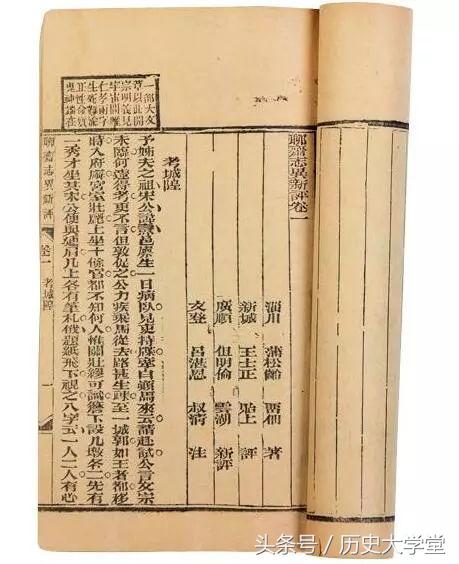 聊齋志異新評卷一
淄川 蒲松齡 留仙 著
新城 王士正 貽上 評
廣順 但明倫 雲湖 新評
文登 呂湛恩 叔清 注
考城隍
予姊夫之祖宋公諱燾邑廩生一日病臥見吏持牒牽白顛馬來云請赴試公言文宗
未臨何遽得考吏不言但敦促之公力疾乘馬從去路甚生疎至一城郭如王者都移
時入府廨宮室壯麗上坐十餘官都不知何人惟關壯繆可識簷下設几墩各二先有
一秀才坐其末公便與連肩几上各有筆札俄題紙飛下視之八字云一人二人有心
一部大文
章以此開
宗明義見
宇宙間惟
仁孝兩字
生死難渝
正性命質
鬼神端在
聊齋志異新評 卷一 考城隍 一
头条号/历史大学堂